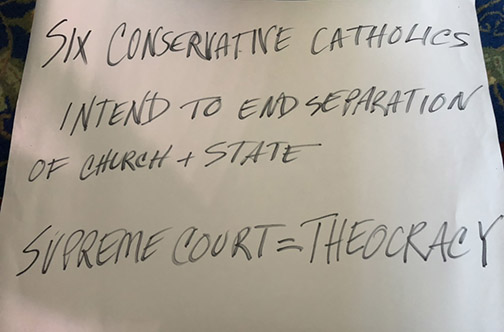 SIX CONSERVATIVE CATHOLICS
INTEND TO END SEPARATION
OF CHURCH + STATE
SUPREME COURT = THEOCRACY